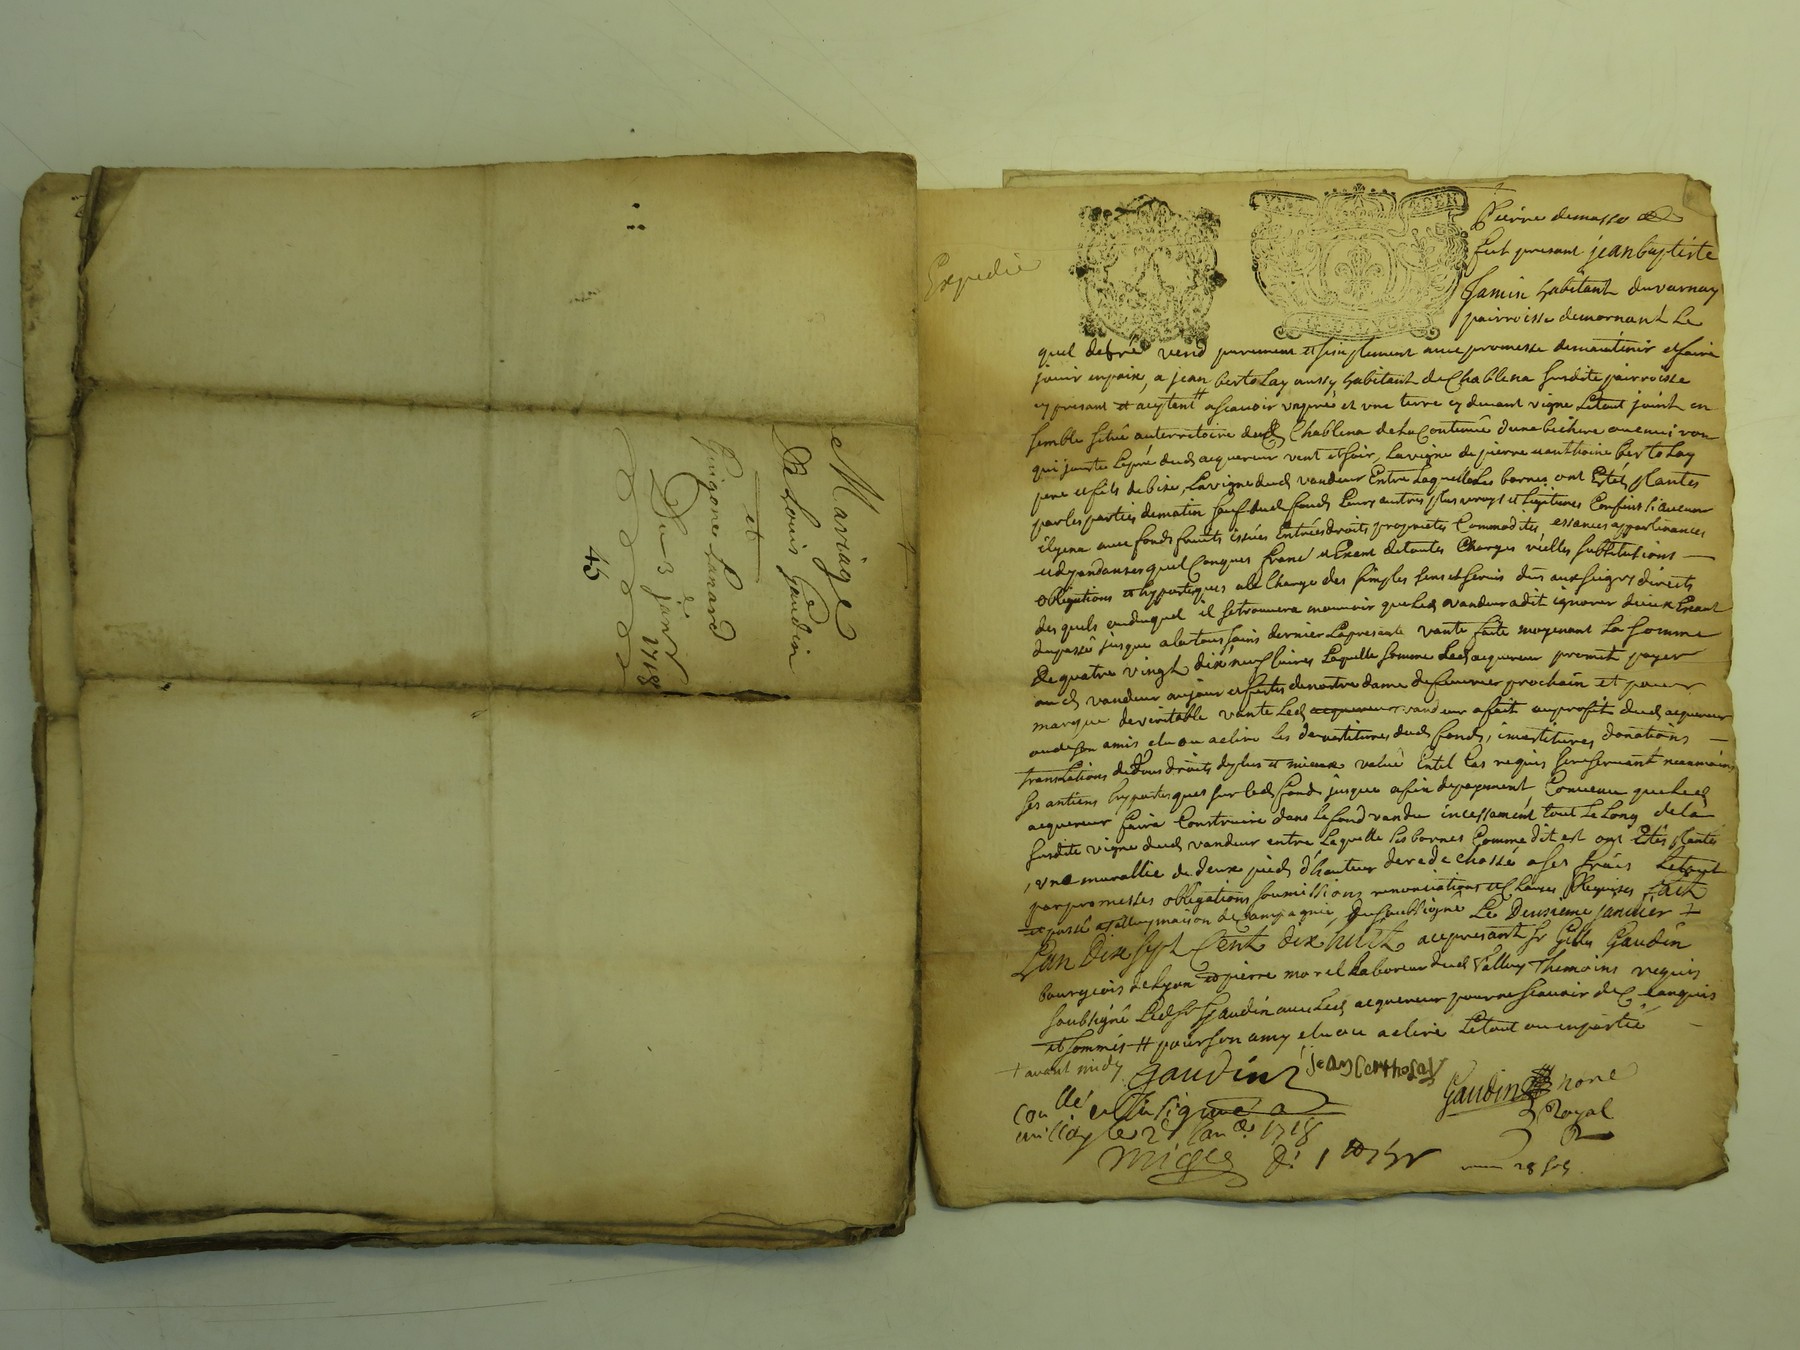 Mariage
De Louis Gaudin
et
Lanard
Du 3 de janv 1718
45
Expedié
Pierre demasso
fut presant jean baptiste
Jamin habitant du varnay
pairroisse demornant Le
quel degré vend purement et simplement avec promesse de maintenir et faire
jouir en paix, a jean bertolay aussy habitant de Chablena susdite pairroisse
cy presant et aceptent ascavoir un pré et une terre cy devant vigne Le tout joint en
semble situé au territoire dud Chablena de la Contenue d'une bichere ou environ
qui jouste Le pré dud acquereur vent et soir, La vigne de pierre et anthoine bertolay
pere et fils de bize, La vigne dud vandeur Entre Laquelle Les bornes ont Estés plantés
par les parties de matin sauf dud fond Leurs autres plus vrays et Legitimes Confins si aucun
il y en a avec fonds fruits issües Entrées droits proprietés Commodités essances appartinances
et dependances quel Conques franc et Exent de toutes Charges vieilles substitutions
obligations et hypoteques a la Charge des simples sens et servis dus aux seigrs directs
des quels ou duquel il se trouvera mouvoir que Led vandeur a dit ignorer d'iceux Exant
du passé jusque a la toussains dernier La presente vante faite moyenant La somme
De quatre vingt dix neuf livres Laquelle somme Led acquereur promet payer
aud vandeur au jour et festes de nostre dame de fevrier prochain et pour
marque de veritable vante Led acquereur vandeur a fait au profit dud acquereur
ou de son amis elu ou a elire les devestitures dud fonds, investitures donations
translations de tous droits de plus et mieux value En tel Cas requis se reservant neanmoins
ses antiens hypoteques sur led fond jusque a fin de payement Convenu que Led
acquereur faira Construire dans Le fond vandu incessament tout Le Long de la
susdite vigne dud vandeur entre Laquelle Les bornes Comme dit est ont Etés plantés
une muraille de deux pieds d'hauteur de rede chossé a ses frais Le tout
par promesses obligations soumissions renonciations et Clauses Requises fait
et passé a valluy maison de Campagnie du soubsigné Le Deuxieme janvier +
L'an Dix sept Cent dix huit, avec presant Sr Gilles Gaudin
bourgeois de Lyon et pierre morel Laboreur dud Valluy Themoins requis
soubsigné Led Sr Gaudin avec Led acquereur pour ne scavoir de enquis
et sommés # pour son amy elu ou a elire Le tout ou en partie
+ avant midy
gaudin
jean berthoLay
Gaudin
Royal
Collé et Insigné a
le 2e Janer 1718